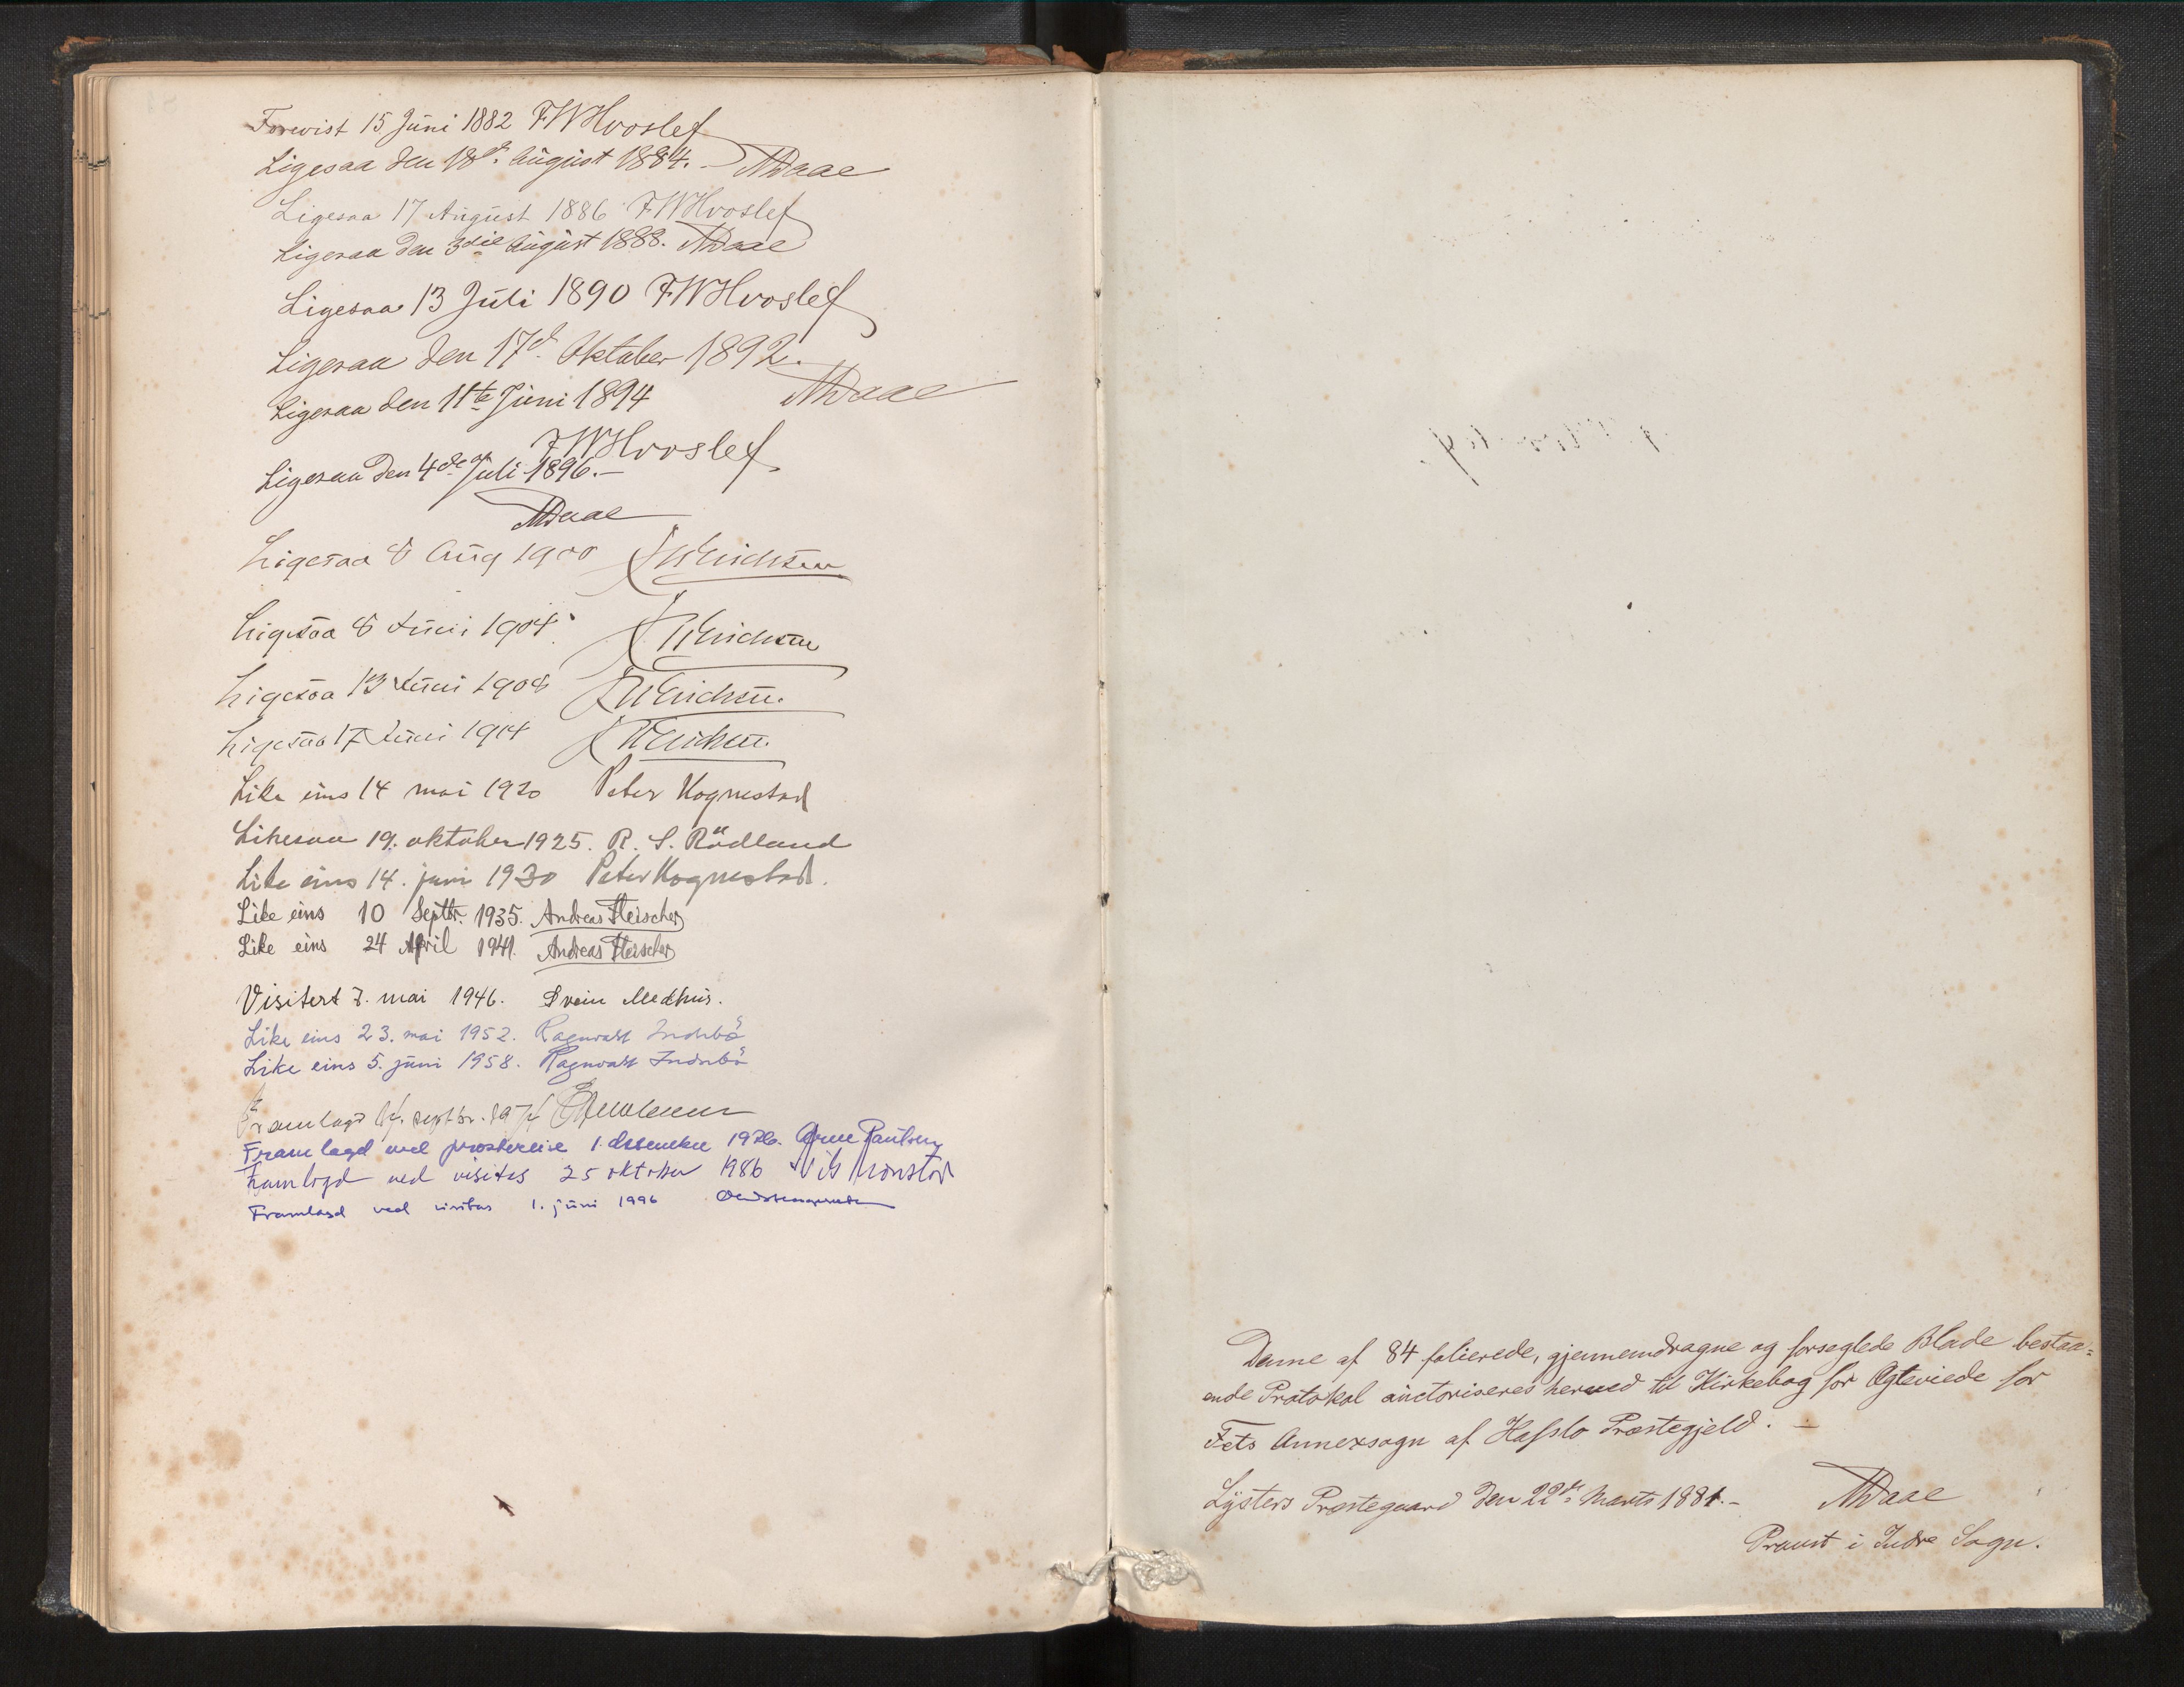 Forevist 15 Juni 1882 FWHvoslef
Ligesaa den 18de August 1884. - ADaae
Ligesaa 17 August 1886 FWHvoslef
Ligesaa den 3die August 1888. ADaae
Ligesaa 13 Juli 1890 FWHvoslef
Ligesaa den 17de Oktober 1892.
ADaae
Ligesaa den 11te Juni 1894
FWHvoslef
Ligesaa den 4de Juli 1896. -
ADaae
Ligesaa 8 Aug 1900 Erichsen
Ligesaa 8 Juni 1904 Erichsen
Ligesaa 13 Juni 1908 Erichsen.
Ligesaa 17 Juni 1914 Erichsen.
Like eins 14 mai 1920 Peter Hognestad
Likesaa 19. oktober 1925. R. S. Rödland
Like eins 14. juni 1930 Peter Hognestad.
Like eins 10 Septbr. 1935. Andreas Fleischer
Like eins 24 April 1941. Andreas Fleischer
Visitert 7. mai 1946. Svein Medhus.
Like eins 23. mai 1952. Ragnvald Indrebö
Like eins 5. juni 1958. Ragnvald Indrebö
Framlagd septbr. 1974
Fram lagd ved prostereise 1. desember 1976. Arne Paulsen
Framlagd ved visitas 25 oktober 1986
Framlagd ved visitas 1. juni 1996
Denne af 84 folierede, gjennemdragne og forseglede Blade bestaa=
ende Protokol auctoriseres herved til Kirkebog for Ægteviede for
Fets Annexsogn af Hafslo Præstegjeld. -
Lysters Præstegaard den 22de Marts 1881. - ADaae
Provst i Indre Sogn.